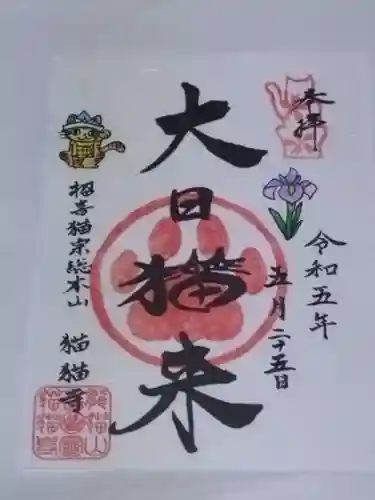 奉拝
令和五年
五月二十五日
大日猫来
招喜猫宗総本山
猫猫寺